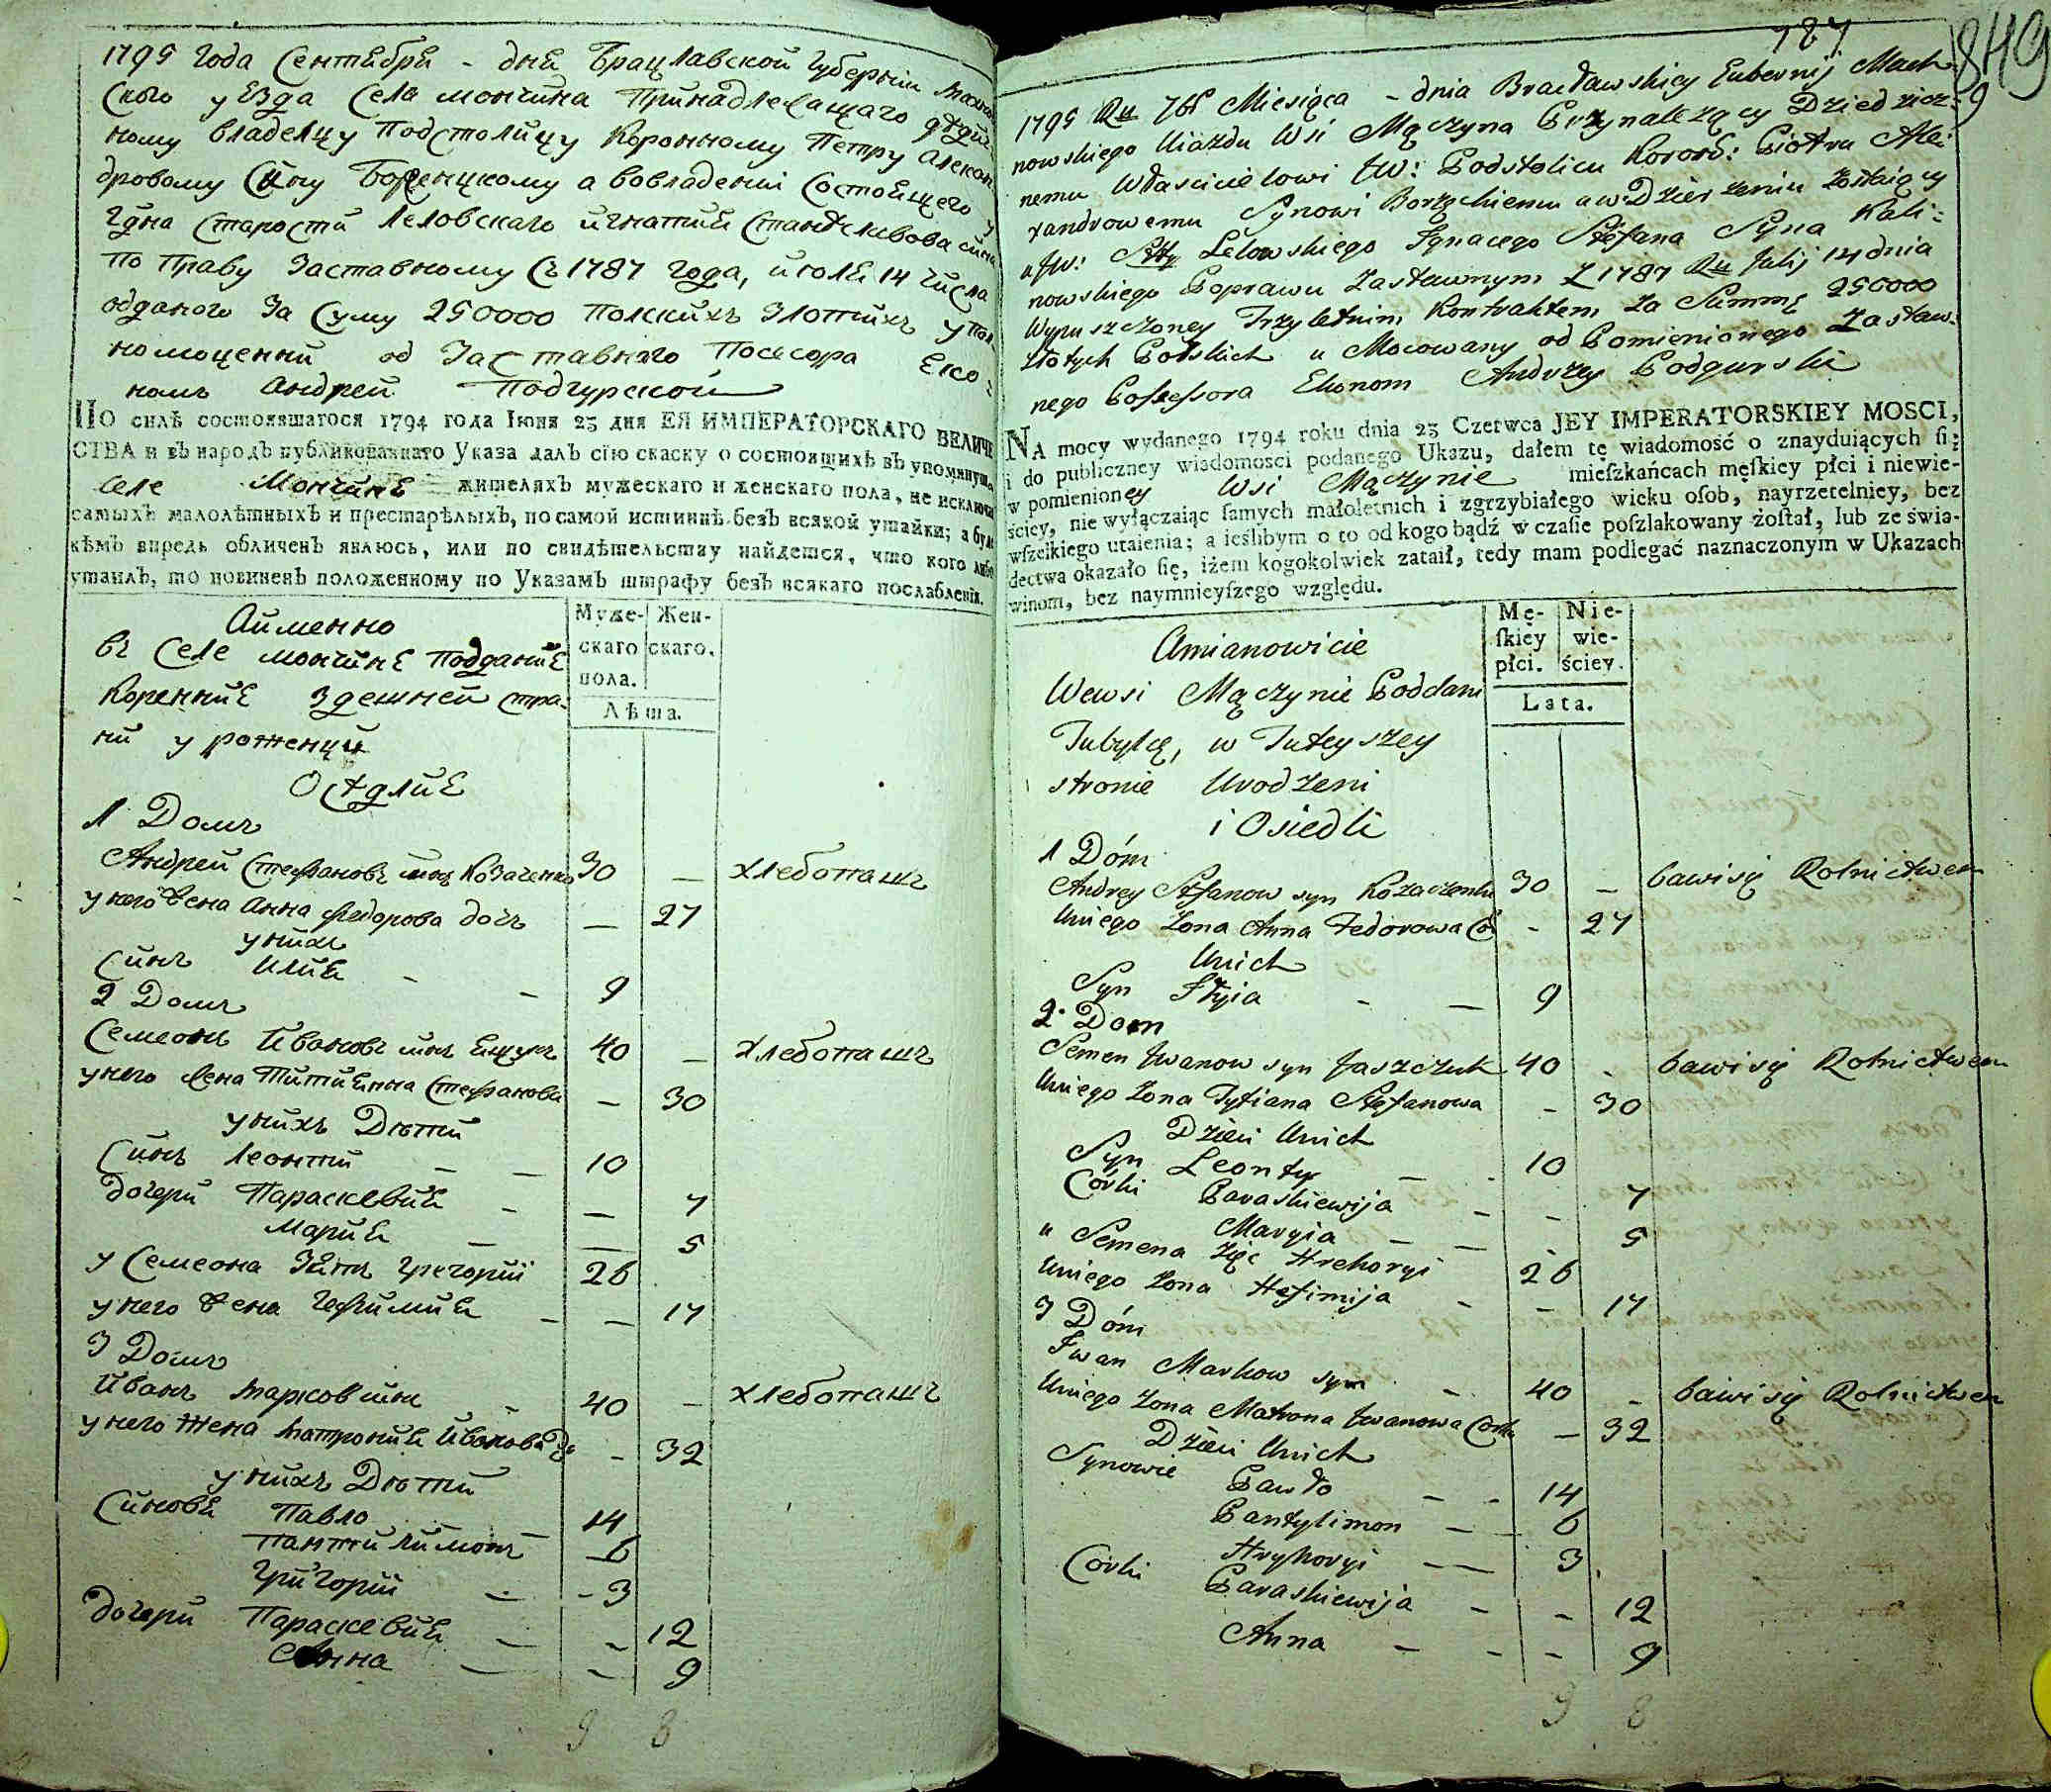 1795 года Сентября - дня Брацлавской Губерніи Махнов
ского уезда Села мончина Принадлежащаго дедич
ному владелцу Подстолицу Коронному Петру Алексан
дровому Сину Боренцкому а вовладении Состоящего у
Гдна Старости Леловскаго игнатия Станиславова сина
По Праву Заставному Съ 1787 года, июля 14 числа
отданого За Суму 250000 Полскихъ Злотихъ упол
номоцений од Заставнаго Посесора Еко-
номъ Андрей Подгурской
ПО силѣ состоявшагося 1794 года Іюня 23 дня ЕЯ ИМПЕРАТОРСКАГО ВЕЛИЧЕ
СТВА и въ народъ публикованнаго Указа далъ сію скаску о состоящихъ въ упомянутом
селе Мончине жителяхъ мужескаго и женскаго пола, не исключая
самыхъ малолѣтныхъ и престарѣлыхъ, по самой истиннѣ безъ всякой утайки; а буде
кѣмъ впредь обличенъ явлюсь, или по свидѣтельству найдется, что кого либо
утаилъ, то повиненъ положенному по Указамъ штрафу безъ всякаго послабленія.
Муже- Жен-
скаго скаго.
пола.
Лѣта.
Аименно
въ Селе мончине Поддание
Корение здешней стра-
ни уроженци
Оседлие
1 Домъ
Андрей Стефановъ синъ Козаченко 30 — хлебопашъ
у него жена Анна Федорова дочь — 27
у нихъ
Синъ Илия - — 9
2 Домъ
Семеонъ Ивановъ синъ Ящукъ 40 — хлебопашъ
у него жена Титиянна Стефанова — 30
у нихъ Дети
Синъ Леонтий — — 10
дочери Параскевия - — 7
Мария — — 5
у Семеона Зять Григорий 26
у него жена Гефимия — — 17
3 Домъ
Иванъ Марковъ синъ - 40 — хлебопашъ
у него жена Матрония Иванова до - 32
у нихъ Дети
Синовя Павло — 14
Пантилимонъ — 6
Григорий — - 3
дочери Параскевия — - 12
Анна — - 9
9 8
787
849
1795 Ru 7br Miesiąca - dnia Bracławskiey Gubernij Mach-
nowskiego Ujazdu Wsi Mączyna Przynależący Dziedzicz-
nemu Włascicielowi JW: Podstolicu Koron: Piotru Ale-
xandrowemu Synowi Borzęckiemu aw Dzierżeniu Zostaiący
u JW: Stty Lelowskiego Jgnacego Stefana Syna Kali-
nowskiego Poprawu Zastawnym Z 1787 Ru Julij 14 dnia
Wypuszczoney Trzyletnim Kontraktem za Summę 250000
Złotych Polskich u Mocowany od Pomienionego Zastaw-
nego Possessora Ekonom Andrzey Podgurski
NA mocy wydanego 1794 roku dnia 23 Czerwca JEY IMPERATORSKIEY MOSCI,
i do publiczney wiadomosci podanego Ukazu, dałem tę wiadomość o znayduiących ſię
w pomienioney Wsi Mączynie mieſzkańcach męſkiey płci i niewie-
ściey, nie wyłączaiąc ſamych małoletnich i zgrzybiałego wieku oſob, nayrzetelniey, bez
wſzelkiego utaienia; a ieślibym o to od kogo bądź w czaſie poſzlakowany żoſtał, lub ze świa-
dectwa okazało ſię, iżem kogokolwiek zataił, tedy mam podlegać naznaczonym w Ukazach
winom, bez naymnieyſzego względu.
Mę- Nie-
ſkiey wie-
płci. ściey.
Lata.
Amianowicie
Wewsi Mączynie Poddani
Tubylcę, w Tuteyszey
stronie Urodzeni
i Osiedli
1 Dóm
Andrey Stefanow syn Kozaczenko 30 — bawi się Rolnictwem
Uniego Żona Anna Fedorowa Có - 27
Unich
Syn Jlyia - — 9
2. Dom
Semen Jwanow syn Jaszczuk 40 - bawi się Rolnictwem
Uniego Żona Tytiana Stefanowa - 30
Dzieci Unich
Syn Leonty — - 10
Córki Paraskiewija - - 7
Maryia — — - 5
u Semena Zięc Hrehoryi 26
Uniego Żona Hefimija - - 17
3 Dóm
Iwan Markow syn - 40 - bawi się Rolnictwem
Uniego Żona Matrona Jwanowa Corka — 32
Dzieci Unich
Synowie Pawło — - 14
Pantylimon — - 6
Hryhoryi — — 3
Córki Paraskiewija - - 12
Anna — - - 9
9 8